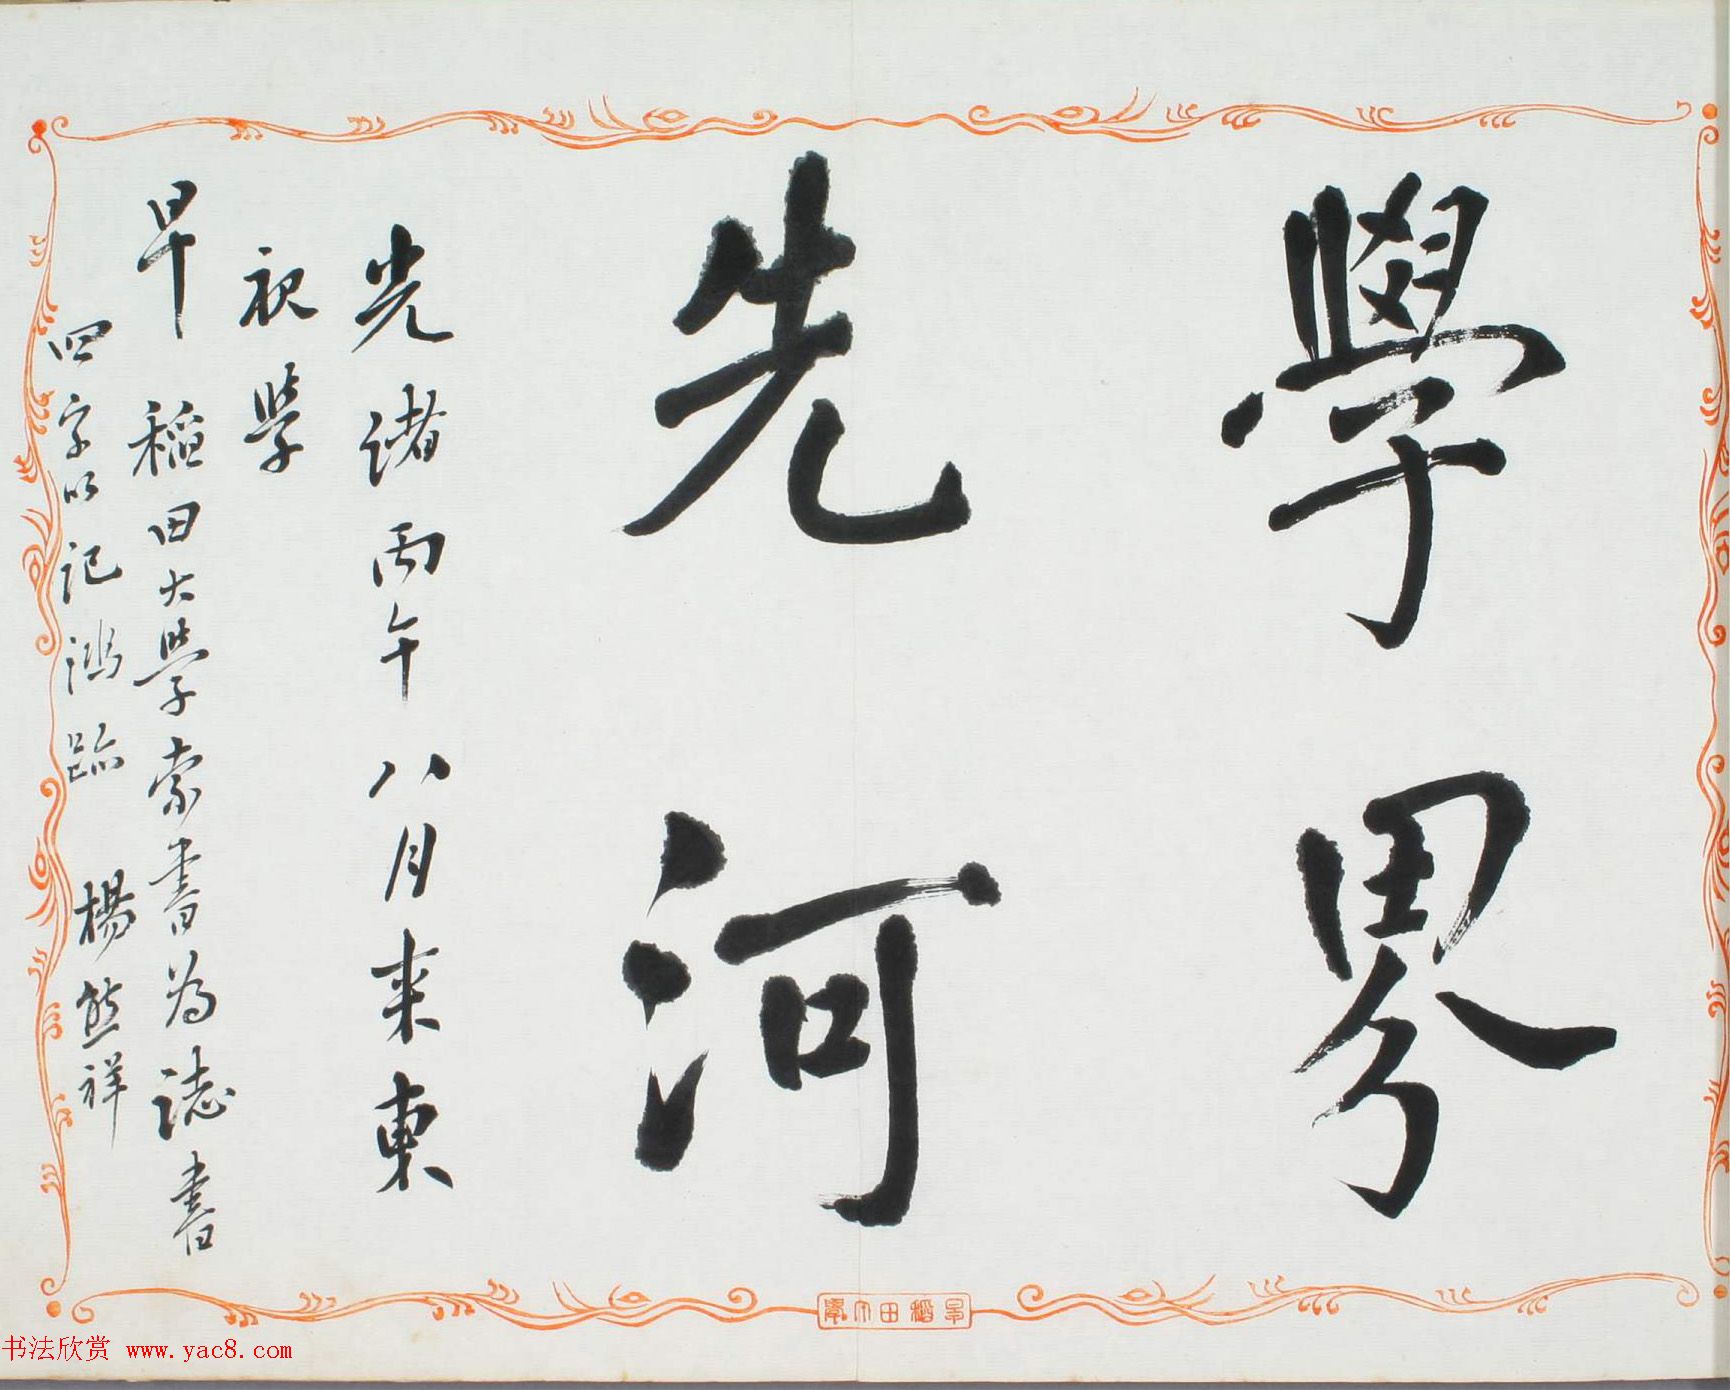 學界
先河
光緒丙午八月来東
視學
早稻田大學索書為誌書
四字以記鴻跡 楊熊祥
早稻田大學
书法欣赏 www.yac8.com